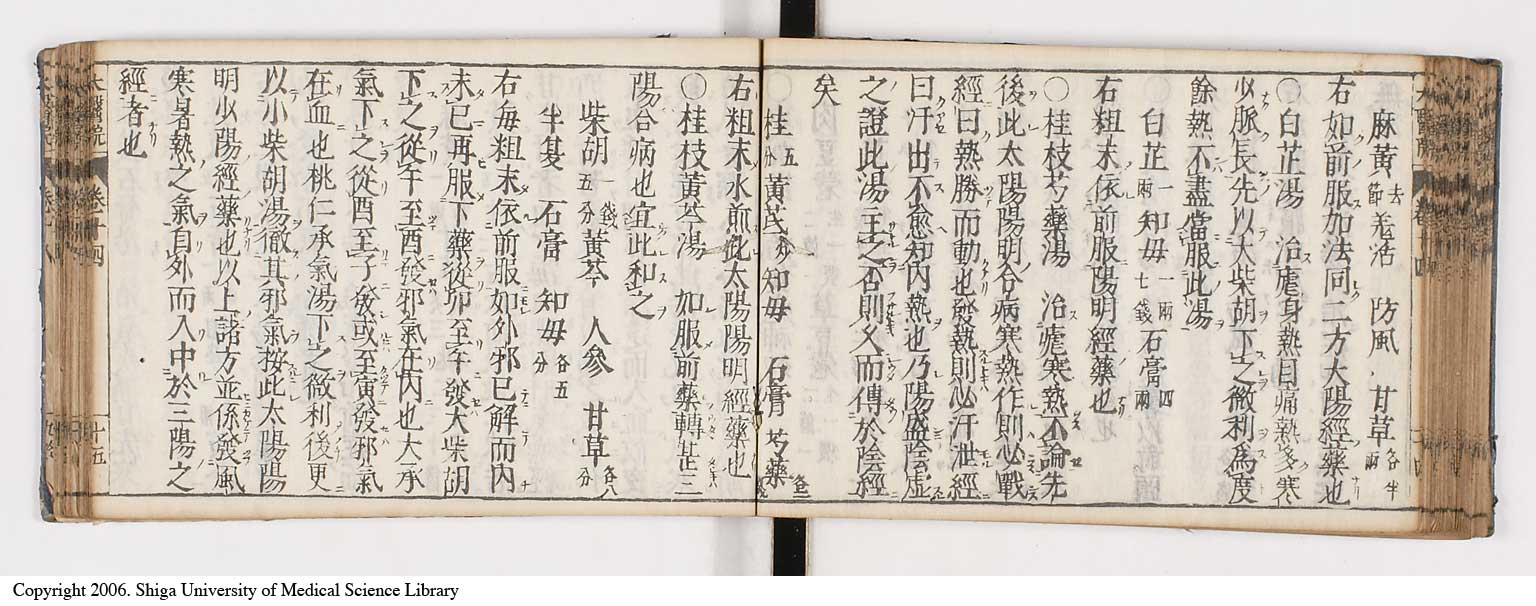 麻黄去節羌活 防風 甘草各半兩
右如前服如法同二方太陽經藥也
○白芷湯 治瘧身熱目痛熱多寒
少脈長先以大柴胡下之微利爲度
餘熱不盡當服此湯
白芷一兩知母一兩七錢石膏四兩
右粗末依前服陽明經藥也
○桂枝芍藥湯 治瘧寒熱不論先
後此太陽陽明合病寒熱作則必戰
經曰熱勝而動也發熱則必汗泄經
曰汗出不愈知内熱也乃陽盛陰虚
之證此湯主之否則久而傳於陰經
矣
桂五分黄芪知母 石膏 芍藥
右粗末水煎此太陽陽明經藥也
○桂枝黄芩湯 如服前藥轉甚三
陽合病也宜此和之
柴胡一錢五分黄芩 人參 甘草各八分
半夏 石膏 知母各五分
右每粗末依前服如外邪已解而内
未已再服下藥從卯至午發大柴胡
下之從午至酉發邪氣在内也大承
氣下之從酉至子發或至寅發邪氣
在血也桃仁承氣湯下之微利後更
以小柴胡湯徹其邪氣按此太陽陽
明少陽經藥也以上諸方並係發風
寒暑熱之氣自外而入中於三陽之
經者也
十五
Copyright 2006. Shiga University of Medical Science Library